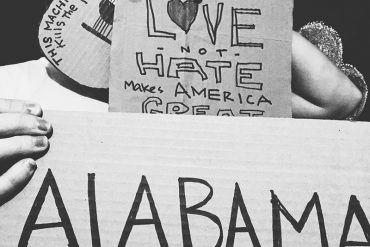 THIS MACHINE
Kills The
LOVE
-NOT-
HATE
MaKes AMERICA
GREAT
ALABAMA